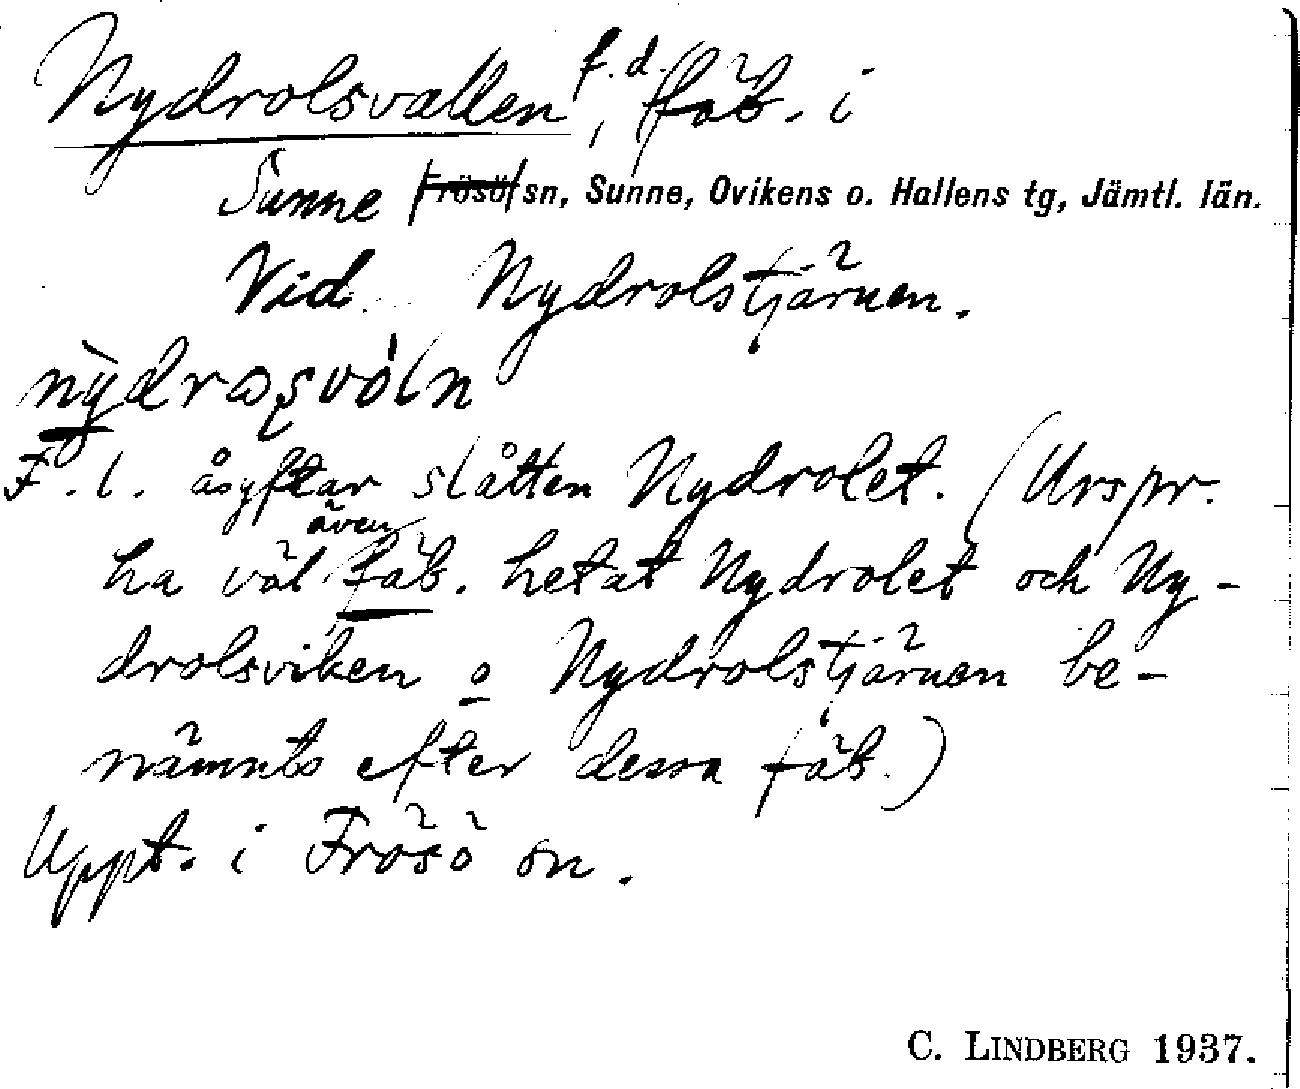 Nydrolsvallen, f.d. fäb. i
Sunne Frösö sn, Sunne, Ovikens o. Hallens tg, Jämtl. län.
Vid Nydrolstjärnen.
F.l. åsyftar slåtten Nydrolet. (Urspr.
ha väl även fäb. hetat Nydrolet och Ny-
drolsviken o Nydrolstjärnen be-
nämnts efter dessa fäb.)
Uppt. i Frösö sn.
C. LINDBERG 1937.